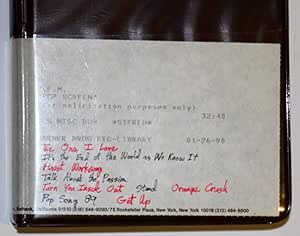 R.E.M.
"POP SCREEN"
(for solicitation purposes only)
32:40
US MISC DUB *STEREO*
WARNER BROS REC-LIBRARY 01-26-90
The One I Love
It's the End of the World as We Know It
Finest Worksong
Talk About the Passion
Turn You Inside Out Stand Orange Crush
Pop Song 89 Get Up
Burbank, California 91510 (818) 846-9090/75 Rockefeller Plaza, New York, New York 10019 (212) 484-6800